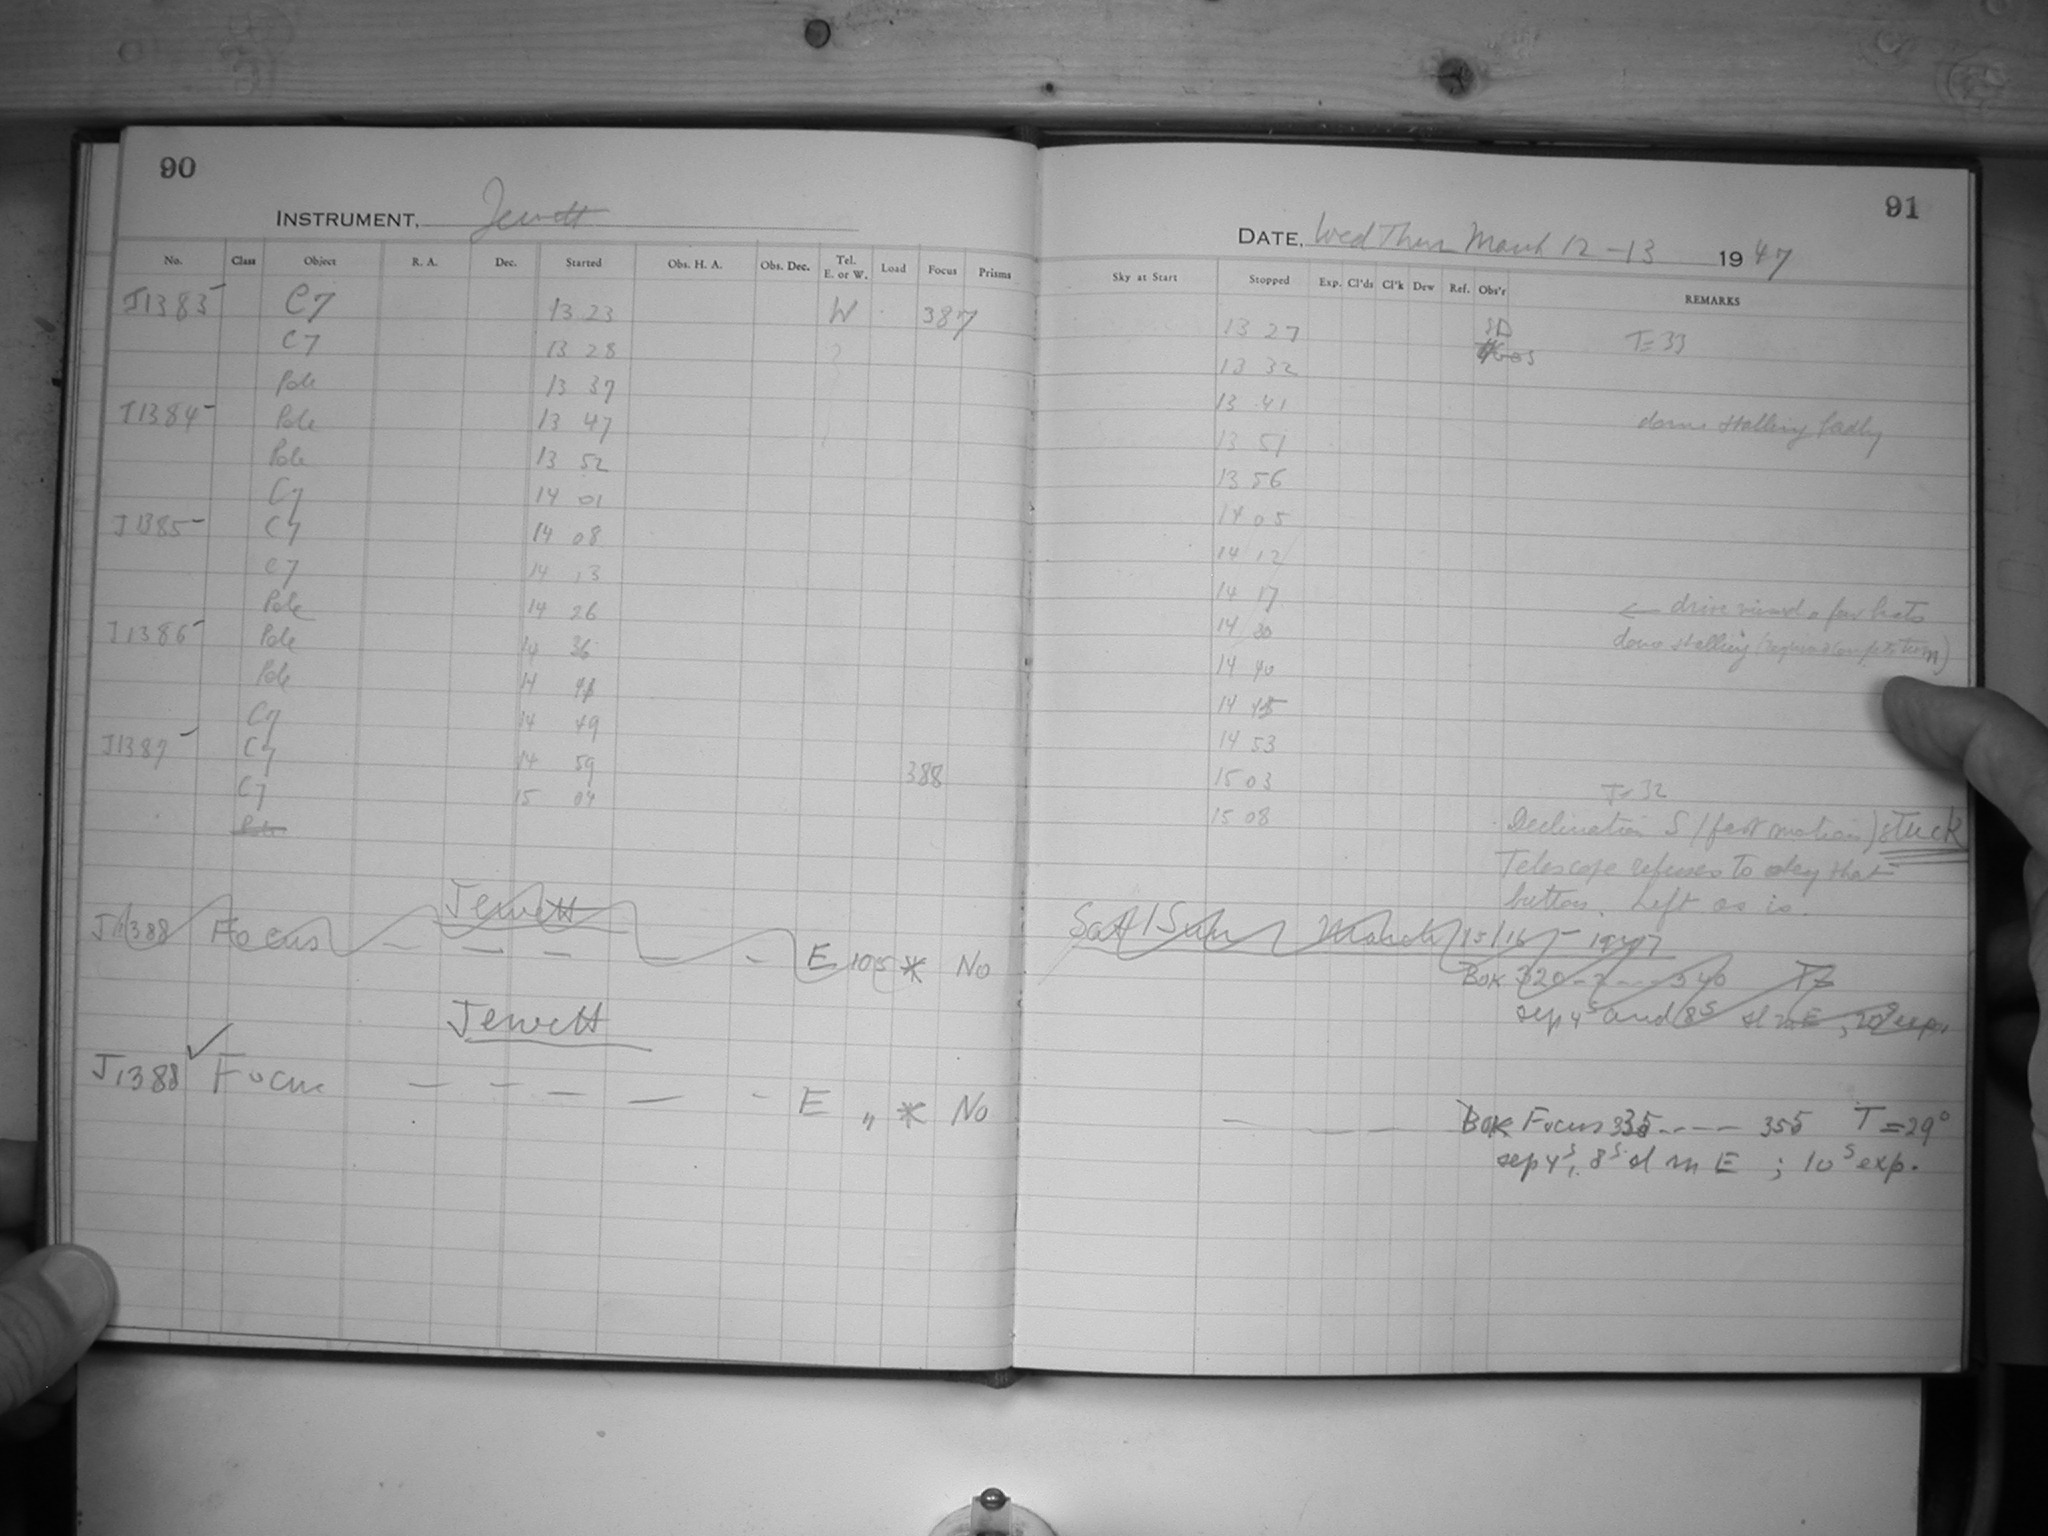 90
INSTRUMENT, Jewett
No. Class Object R. A. Dec. Started Obs. H. A. Obs. Dec. Tel. E. or W. Load Focus Prisms
J1383 C7 13 23 W 387
C7 13 28
Pole 13 37
J1384 Pole 13 47
Pole 13 52
C7 14 01
J1385 C7 14 08
C7 14 13
Pole 14 26
J1386 Pole 14 36
Pole 14 41
C7 14 49
J1387 C7 14 59 388
C7 15 04
Pole
Jewett
J1388 Focus — — — — - E 105 * No
Jewett
J1388 ✓ Focus — — — — - E " * No
91
DATE, Wed Thur March 12 - 13 1947
Sky at Start Stopped Exp. Cl'ds Cl'k Dew Ref. Obs'r REMARKS
13 27 SD T = 33
13 32
13 41
13 51 dome stalling badly
13 56
14 05
14 12
14 17
14 30 ← drive missed a few beats
14 40 dome stalling
14 45
14 53
15 03 T = 32
15 08 Declination S (fast motion) stuck
Telescope refuses to obey that
button. Left as is.
Sat/Sun March 15/16 - 1947
Bok 320 - - - - 340 T=
sep 4s and 8s st in E, 20s exp.
— — — Bok Focus 335 - - - - 355 T = 29°
sep 4s, 8s st in E ; 10s exp.